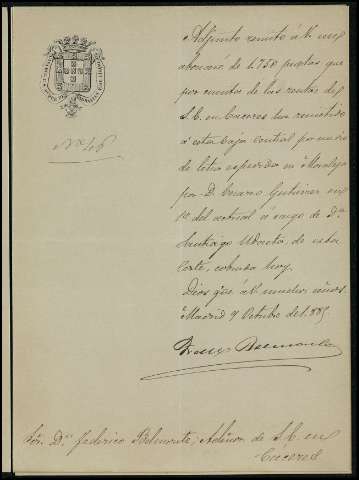 Nº 46
Adjunto remito á V. un
abonaré de 1.758 pesetas que
por cuenta de las rentas de
S. E. en Cáceres ha remitido
á esta Caja Central por medio
de letra expedida en Moraleja
por D. Genaro Gutierrez en
1º del actual á cargo de Dn
Santiago Udaeta de esta
Corte, cobrada hoy.
Dios gue á V. muchos años.
Madrid 9 Octubre de 1.885
Sor. Dn Federico Belmonte, Admor. de S. E. en
Cáceres